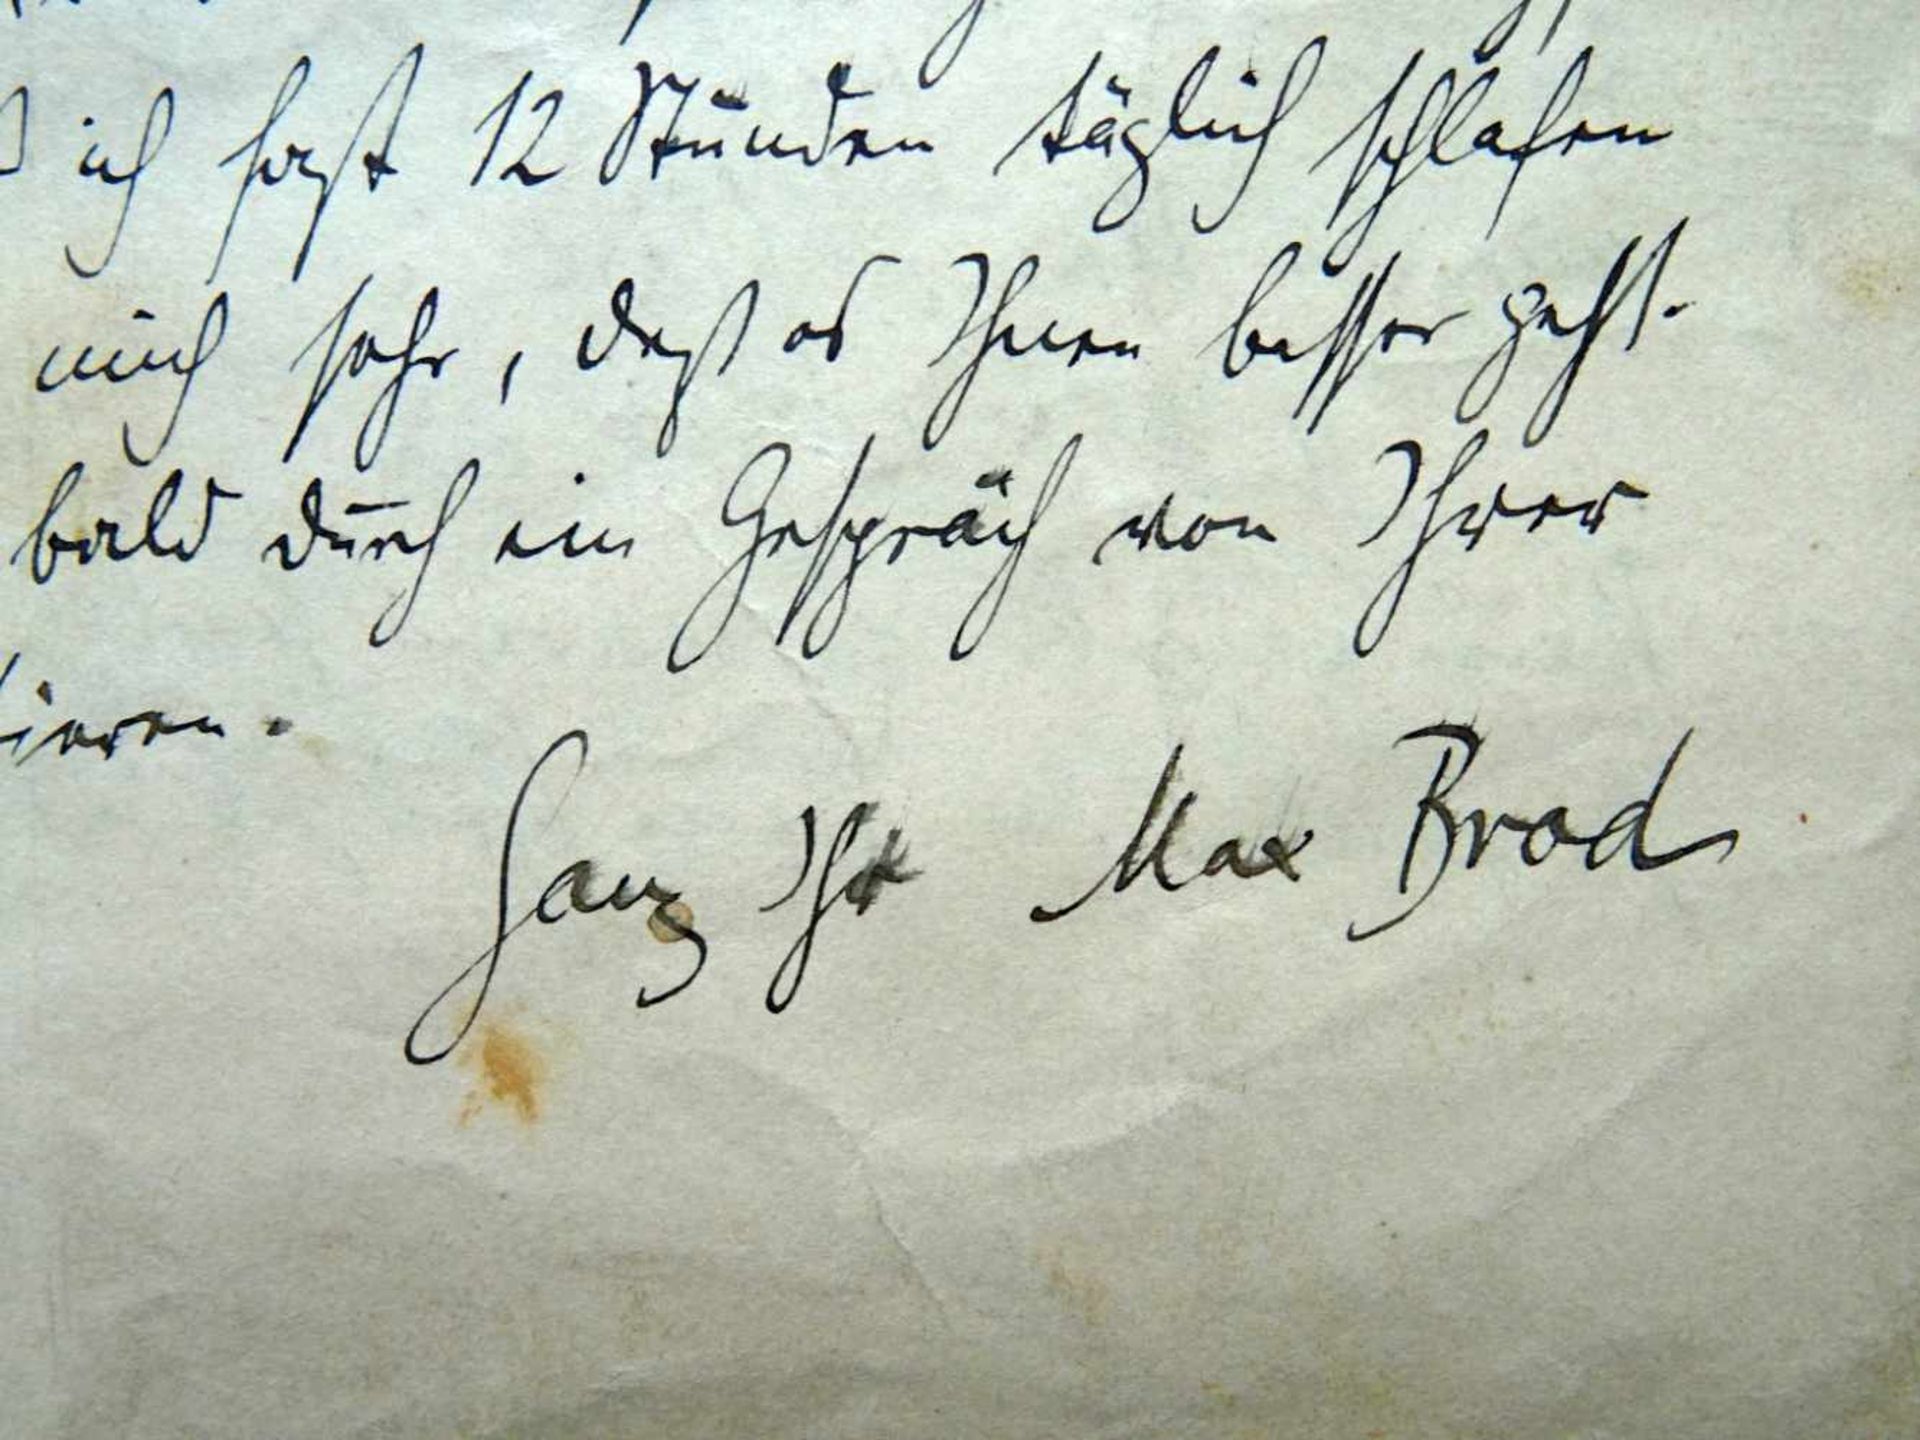 ich fast 12 Stunden täglich schlafen
mich sehr, daß es Ihnen besser geht.
bald durch ein Gespräch von Ihrer
ieren.
Ganz Ihr Max Brod